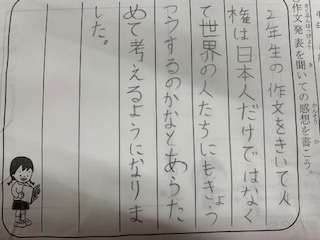 作文発表を聞いての感想を書こう。
2年生の作文をきいて人
権は日本人だけではなく
て世界の人たちにもきょう
つうするのかなとあらた
めて考えるようになりま
した。